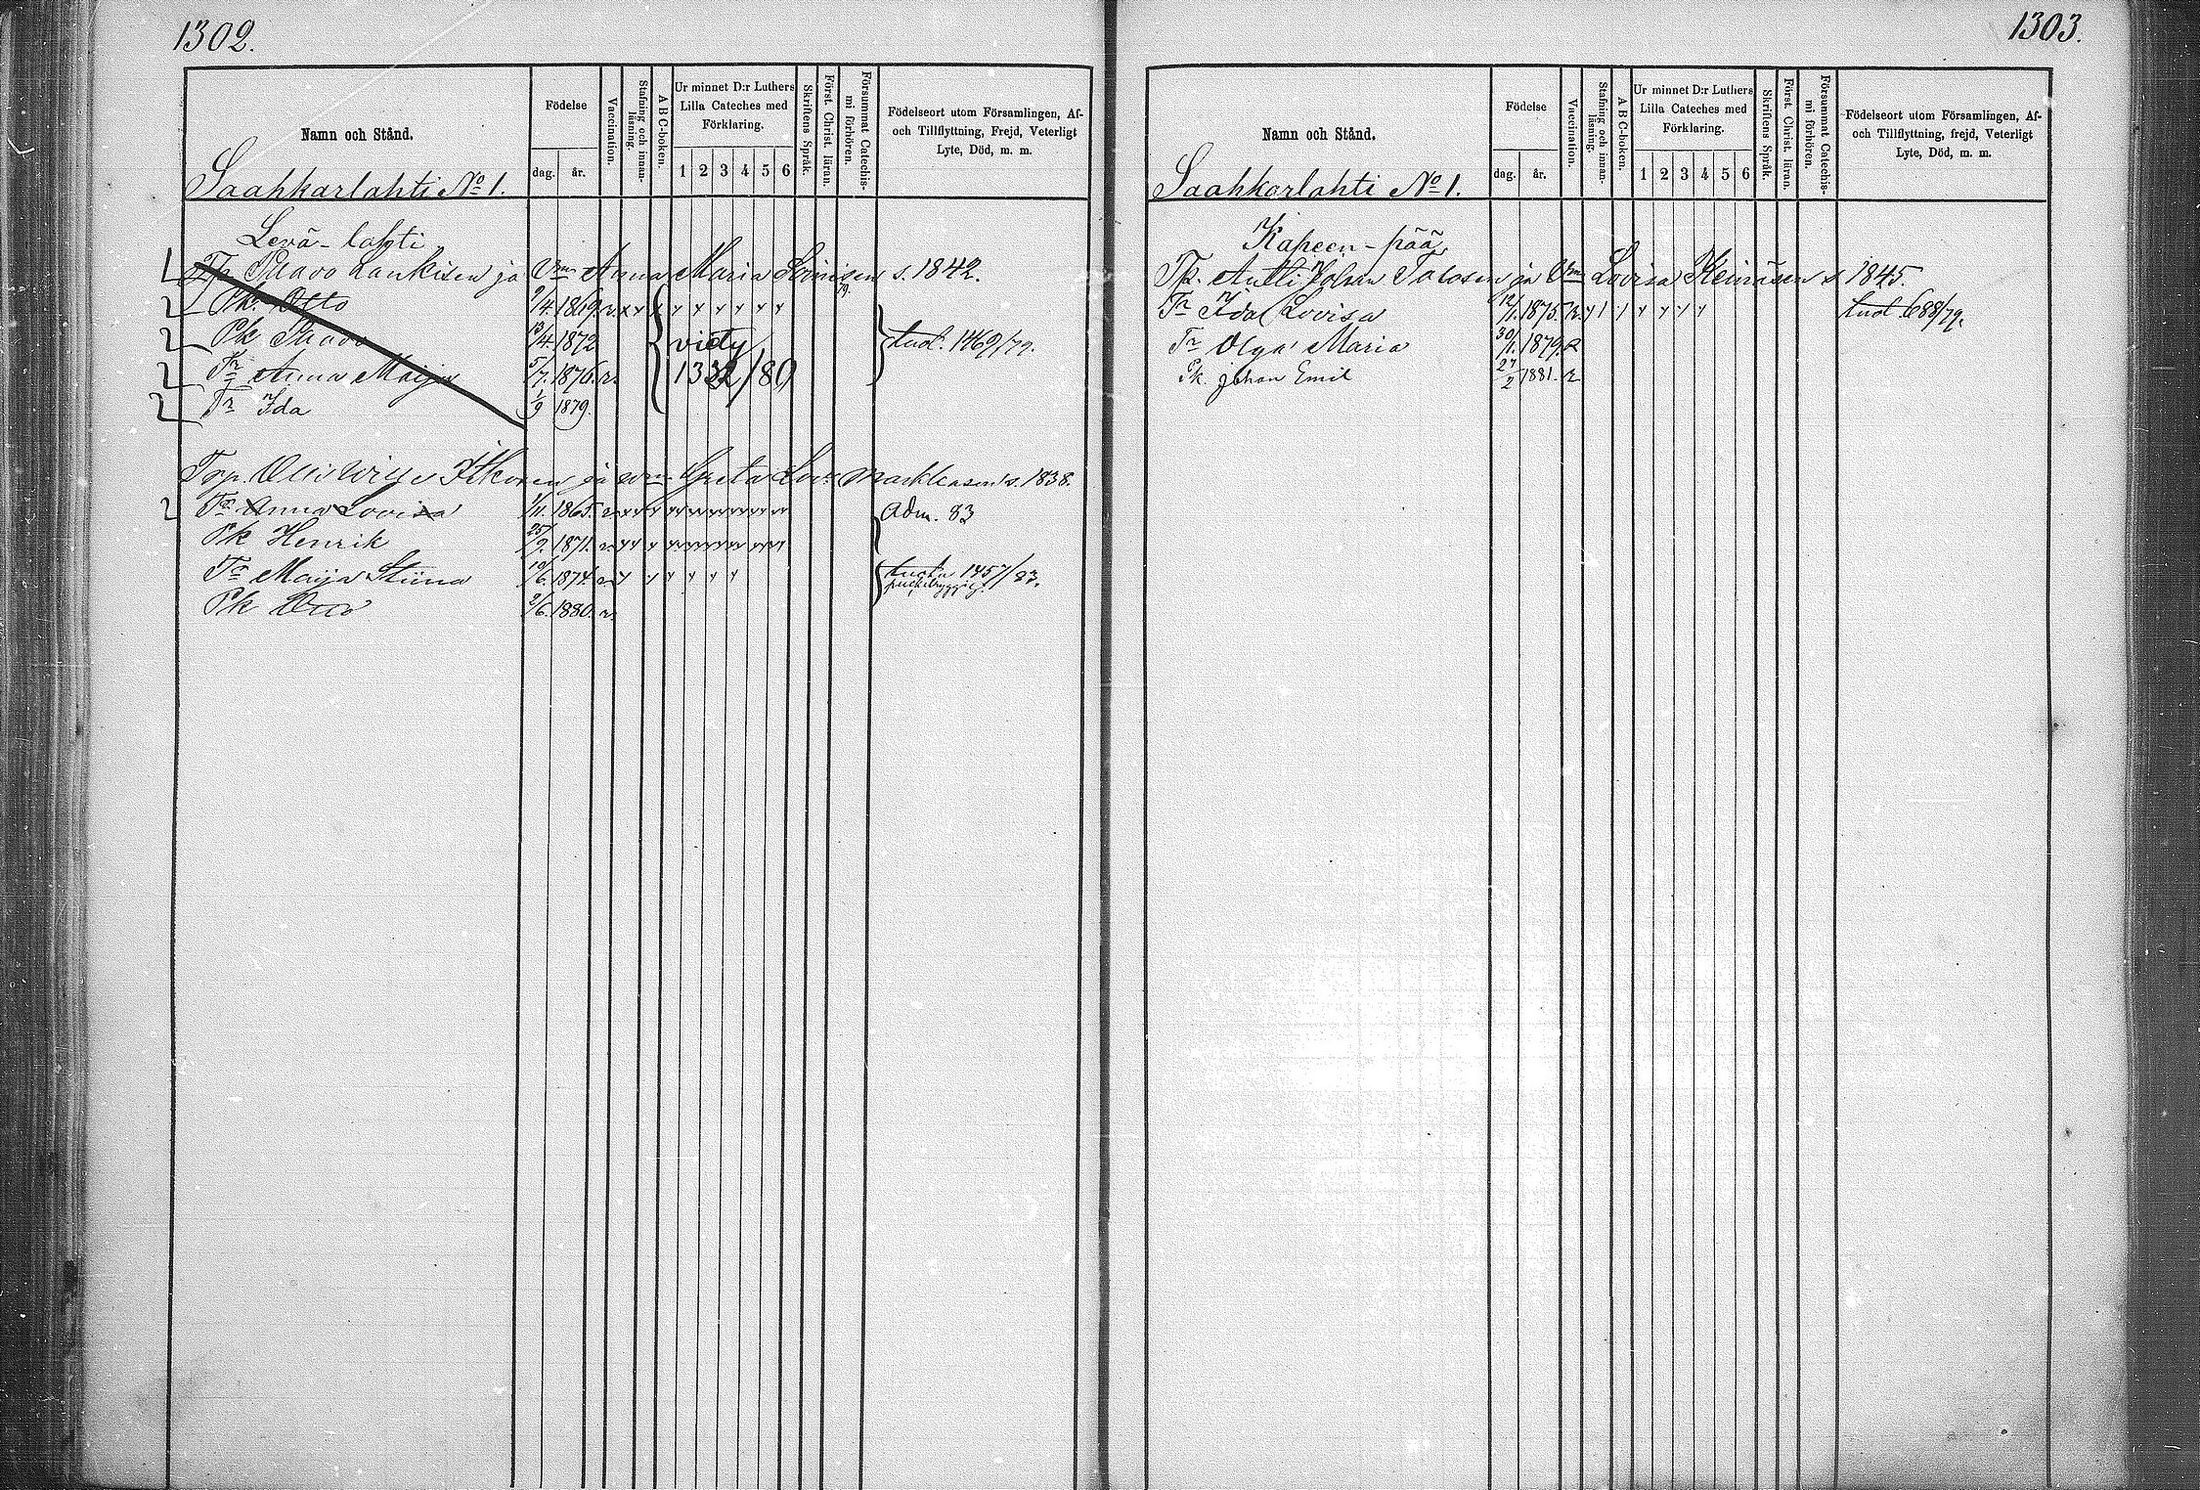 1302.
Namn och Stånd.
Födelse
dag. år.
Vaccination.
Stafning och innan-läsning.
A B C-boken.
Ur minnet D:r Luthers Lilla Cateches med Förklaring.
1 2 3 4 5 6
Skriftens Språk.
Först. Christ. läran.
Försummat Catechis-mi förhören.
Födelseort utom Församlingen, Af- och Tillflyttning, Frejd, Veterligt Lyte, Död, m. m.
Saahkarlahti No 1.
Levä-lahti
Tp Paavo Laukisen ja Vm Anna Maria s. 1842.
Pk. Otto 9/4. 1869.
Pk Paavo 13/4. 1872 viety tuot. 1469/79.
Tr Anna Maija 5/7. 1876. 1332/80
Tr Ida 1/9 1879.
Olli Wille Itkonen ja Wm Greta Lov. s. 1838.
Tr Anna Lovisa 1/11. 1865. Adm. 83
Pk Henrik 25/9. 1871.
Tr Maija Stiina 10/6. 1874. 1457/82.
Pk Otto 2/6. 1880.
1303.
Namn och Stånd.
Födelse
dag. år.
Vaccination.
Stafning och innan-läsning.
A B C-boken.
Ur minnet D:r Luthers Lilla Cateches med Förklaring.
1 2 3 4 5 6
Skriftens Språk.
Först. Christ. läran.
Försummat Catechis-mi förhören.
Födelseort utom Församlingen, Af- och Tillflyttning, frejd, Veterligt Lyte, Död, m. m.
Saahkarlahti No 1.
Kapeen-pää
Tp. Antti Johan Tolosen ja Vm Lovisa Heinäsen s 1845.
Tr Ida Lovisa 12/1. 1875. tuot. 688/79.
Tr Olga Maria 30/1. 1879.
Pk. Johan Emil 27/2 1881.